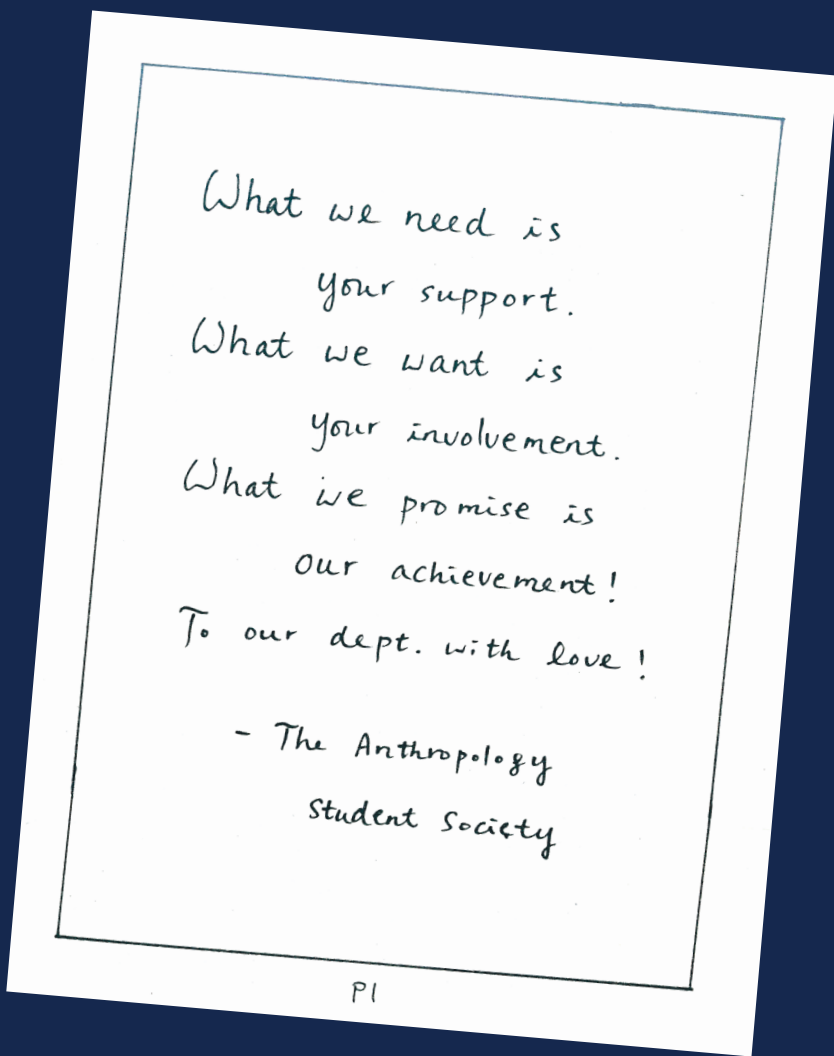 What we need is
your support.
What we want is
your involvement.
What we promise is
our achievement!
To our dept. with love!
- The Anthropology
Student Society
P1